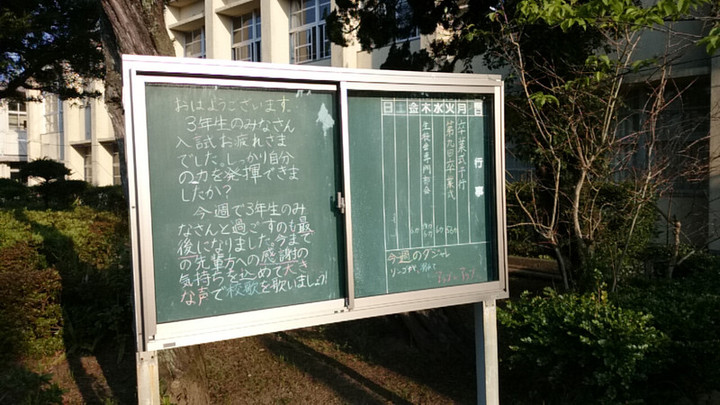 おはようございます。
3年生のみなさん
入試お疲れさま
でした。しっかり自分
の力を発揮できま
したか?
今週で3年生のみ
なさんと過ごすのも最
後になりました。今まで
の先輩方への感謝の
気持ちを込めて大き
な声で校歌を歌いましょう!
日土金木水火月
行事
卒業式予行
卒業式
生徒会専門部会
今週のダジャレ